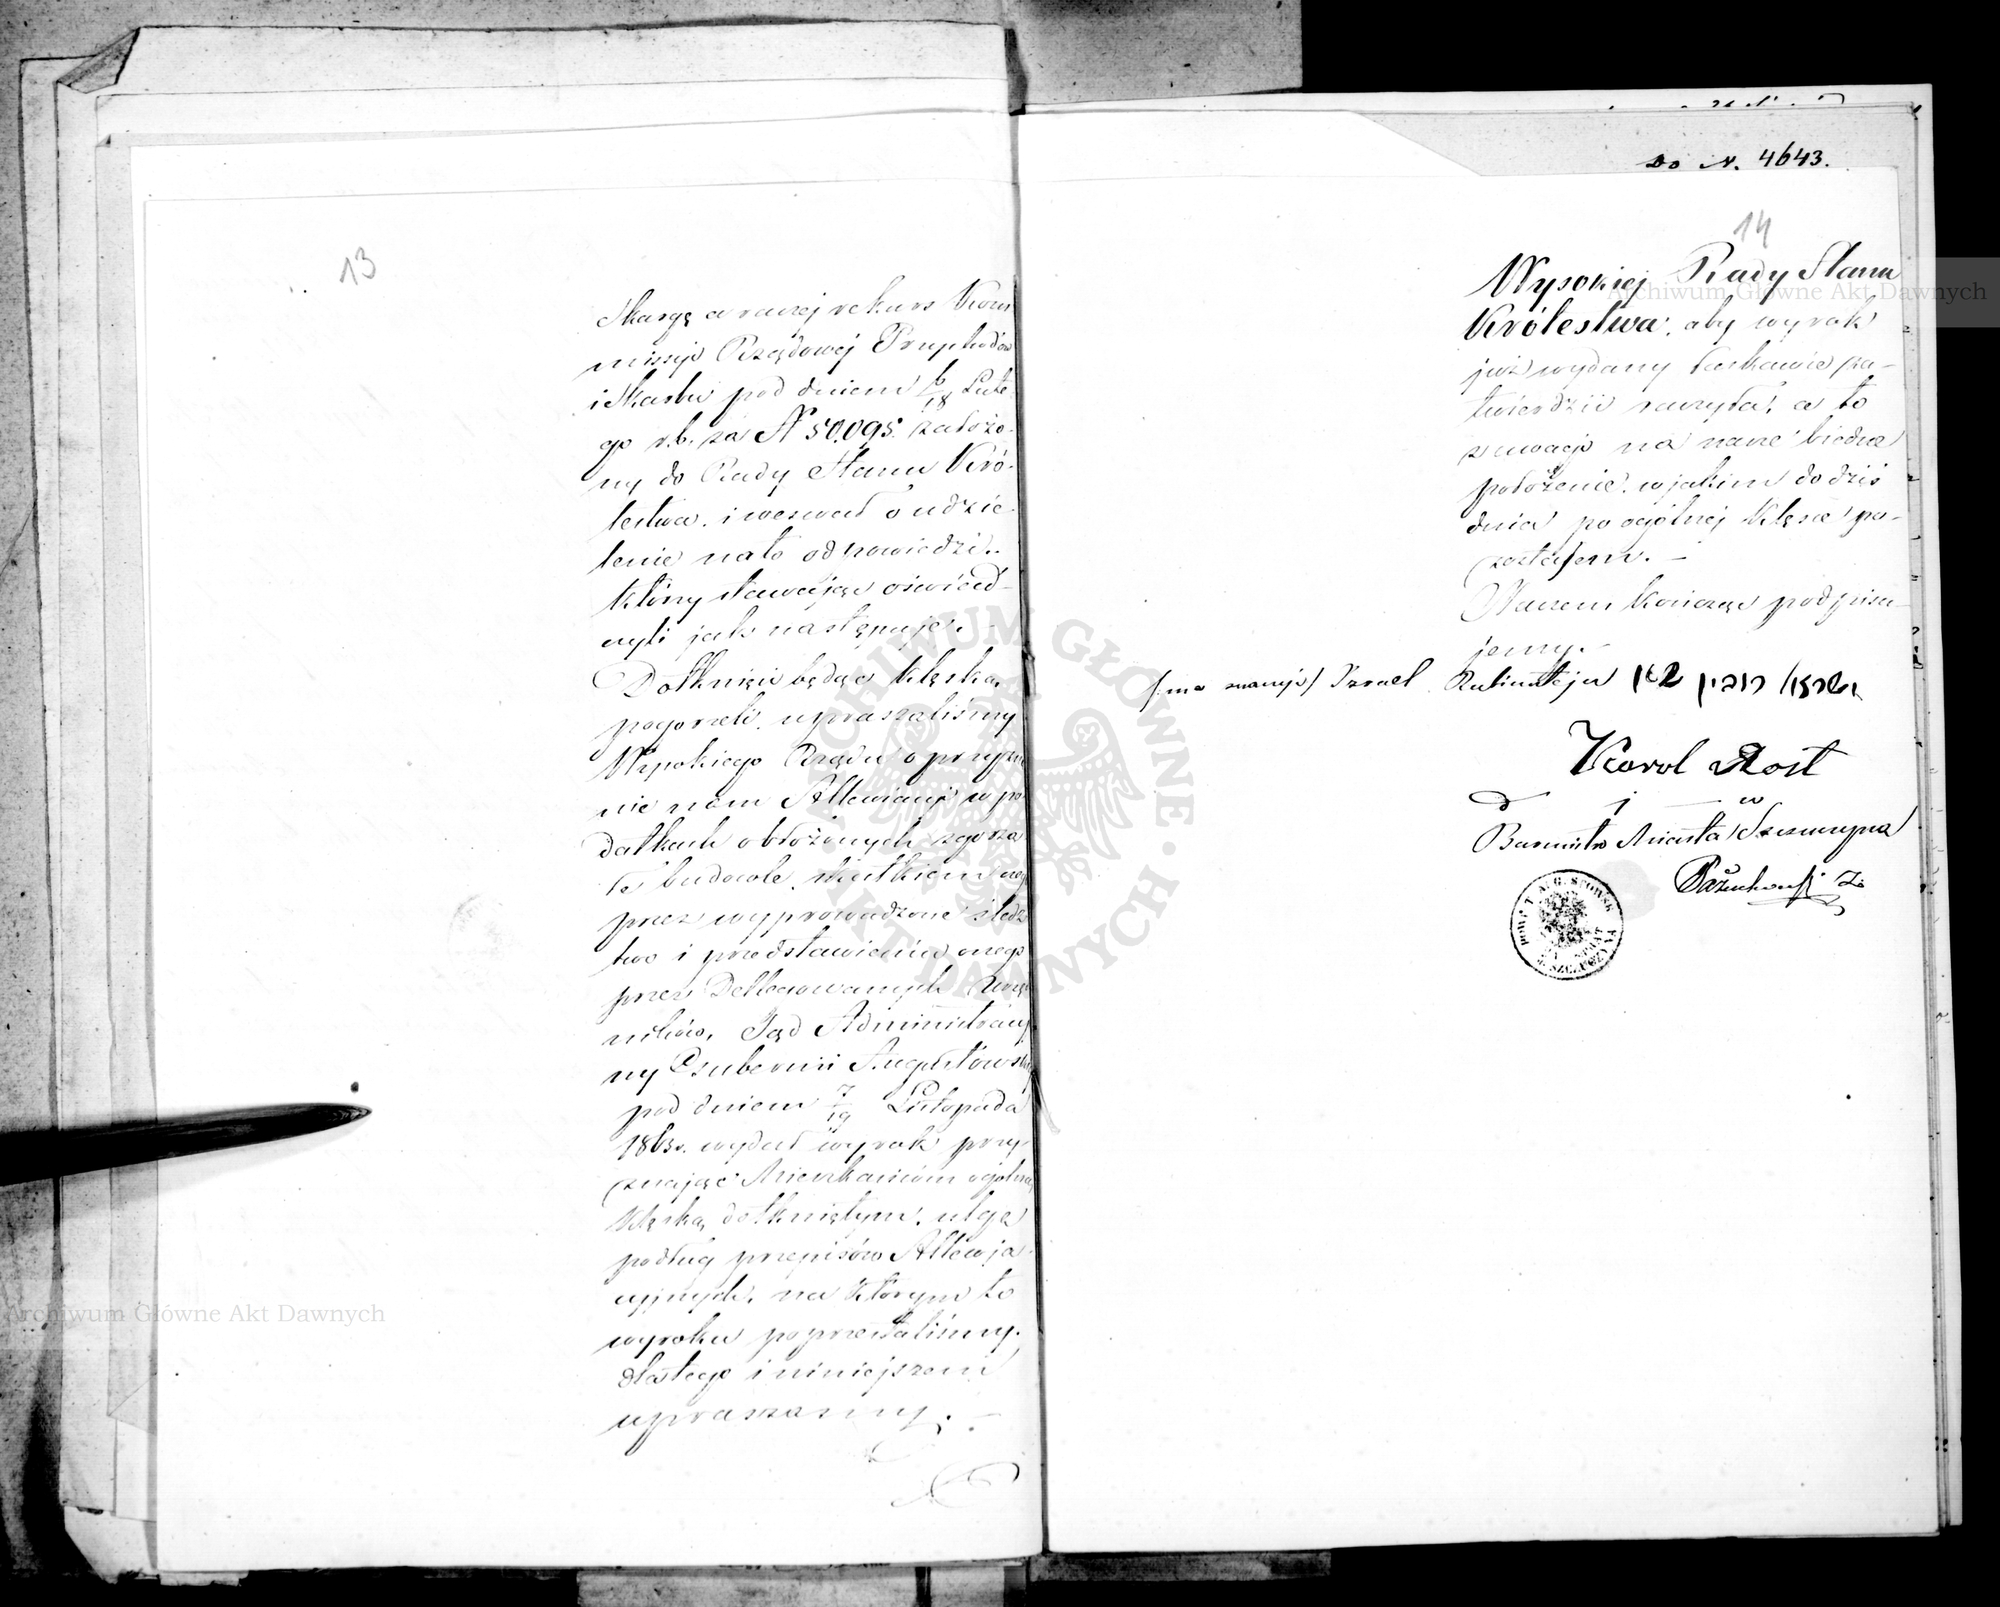 13
skargę a raczej rekurs Kom
missji Rządowej Przychodów
i Skarbu pod dniem 6/18 Lute
go r.b. za N 50,095. założo
ny do Rady Stanu Kró-
lestwa. i wezwał o udzie
lenie na to odpowiedzi..
którzy stawając oświad
czyli jak następuje. –
Dotknięci będąc klęską
pogorzeli. upraszaliśmy
Wysokiego Rządu o przyzna
nie nam Allewiacji w po
datkach obłożonych zgorza
łe budowle, skutkiem czego
przez wyprowadzone śledz
two i przedstawienia onego
przez Dellegowanych Urzęd
ników, Sąd Administracyj
ny Gubernii Augustowskiej
pod dniem 7/19 Listopada
1863r. wydał wyrok przy-
znając Mieszkańcom ogólną
klęską dotkniętym, ulgę
podług przepisów Allewja-
cyjnych, na którym to
wyroku poprzestaliśmy.
dlatego i niniejszem
upraszamy. –
Do N. 4643.
14
Wysokiej Rady Stanu
Królestwa, aby wyrok
już wydany łaskawie za-
twierdzić raczyła, a to
z uwagi na nasze biedne
położenie, w jakim do dziś
dnia po ogólnej klęsce po-
zostajem. –
Na czem kończąc podpisu-
jemy. –
Izrael Rubinsztejn ישראל רובין
Karol Rost
Burmistrz Miasta Szczuczyna
Archiwum Główne Akt Dawnych
Archiwum Główne Akt Dawnych
ARCHIWUM GŁÓWNE · AKT DAWNYCH ·